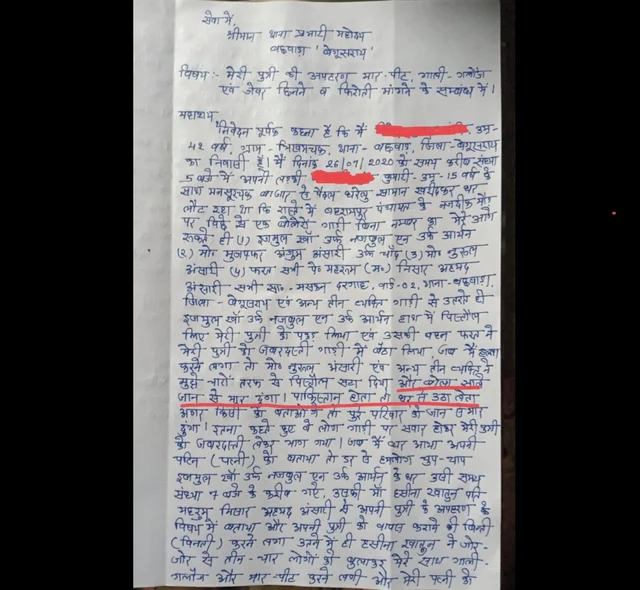 सेवा में,
श्रीमान थाना प्रभारी महोदय
बछवाड़ा 'बेगूसराय'
विषय:- मेरी पुत्री की अपहरण मार-पीट, गाली-गलौज
एवं जेवर छिनने व फिरौती मांगने के सम्बन्ध में।
महाशय,
निवेदन पूर्वक कहना है कि मैं उम्र-
42 वर्ष, ग्राम- भिखमचक, थाना- बछवाड़ा, जिला- बेगूसराय
का निवासी हूँ। मैं दिनांक 26/07/2020 को समय करीब संध्या
5 बजे मैं अपनी लड़की कुमारी- उम्र- 15 वर्ष के
साथ मनसूरचक बाजार से पैदल घरेलु सामान खरीदकर घर
लौट रहा था कि रास्ते में बहरामपुर पंचायत के नजदीक मोड़
पर पिछे से एक बोलेरो गाड़ी बिना नम्बर का मेरे आगे
रूकते ही (1) इजमुल खाँ उर्फ नजकुल एन उर्फ आर्यन
(2) मो० मुजफ्फर अंगुम अंसारी उर्फ चाँद (3) मो० नुरूल
अंसारी (4) फरत सभी पे० महरूम (म०) निसार अहमद
अंसारी- सभी सा०- मसऊन दरगाह, वार्ड-02, थाना- बछवाड़ा,
जिला- बेगूसराय एवं अन्य तीन व्यक्ति गाड़ी से उतरते ही
इजमुल खाँ उर्फ नजकुल एन उर्फ आर्यन हाथ में पिस्तौल
लिए मेरी पुत्री को पकड़ लिया एवं उसकी बहन फरत ने
मेरी पुत्री को जबरदस्ती गाड़ी में बैठा लिया, जब मैं हल्ला
करने लगा तो मो० नुरूल अंसारी एवं अन्य तीन व्यक्ति ने
मुझे चारो तरफ से पिस्तौल सटा दिया और बोला साले
जान से मार दूंगा। पाकिस्तान होता तो घर से उठा लेता
अगर किसी को बताओगे तो पुरे परिवार को जान से मार
दूंगा। इतना कहते हुए वे लोग गाड़ी पर सवार होकर मेरी पुत्री
को जबरदस्ती लेकर भाग गया। जब मैं घर आया अपनी
पत्नि (पत्नी) को बताया तो डर से हमलोग चुप-चाप
इजमुल खाँ उर्फ नजकुल एन उर्फ आर्यन के घर उसी समय
संध्या 7 बजे के करीब गए, उसकी माँ हसीना खातुन पति-
महरूम निसार अहमद अंसारी से अपनी पुत्री के अपहरण के
विषय में बताया और अपनी पुत्री को वापस कराने की विनती
(विनती) करने लगा इतने में ही हसीना खातून ने जोर-
जोर से तीन-चार लोगों को बुलाकर मेरे साथ गाली-
गलौज और मार-पीट करने लगी और मेरी पत्नी को